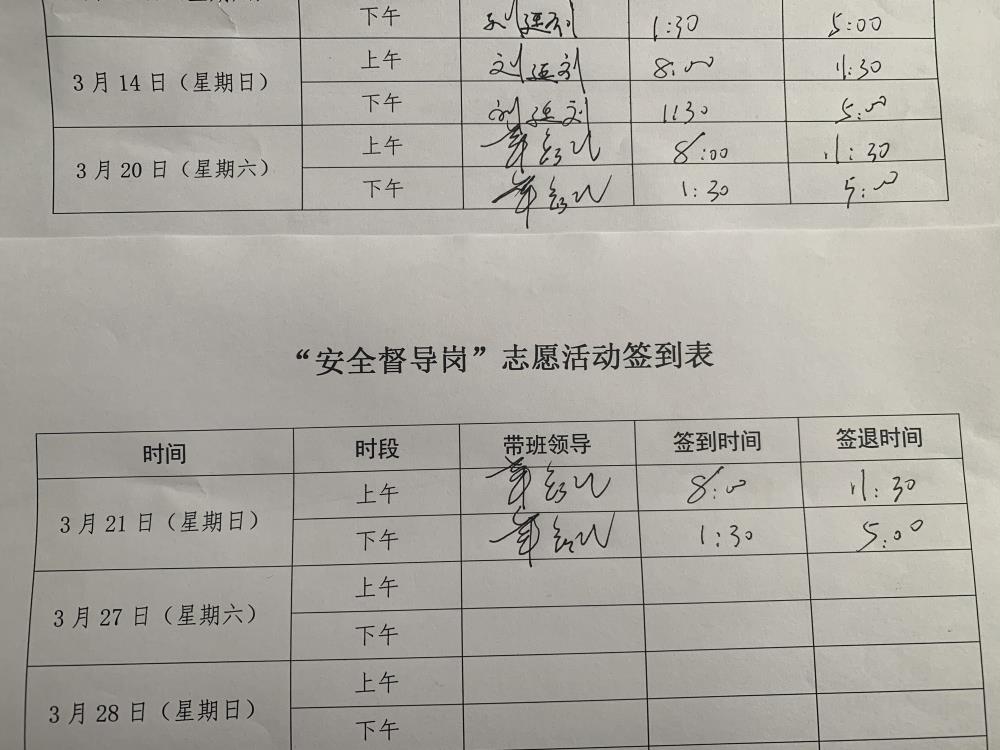 下午 1:30 5:00
上午 刘 8:00 11:30
3月14日（星期日）
下午 刘 1130 5:00
上午 8:00 11:30
3月20日（星期六）
下午 1:30 5:00
“安全督导岗”志愿活动签到表
时间 时段 带班领导 签到时间 签退时间
上午 8:00 11:30
3月21日（星期日）
下午 1:30 5:00
上午
3月27日（星期六）
下午
上午
3月28日（星期日）
下午